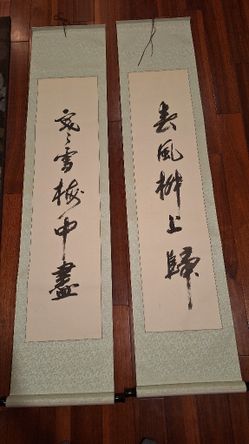 春風柳上歸
寒雪梅中盡